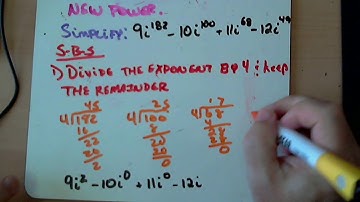 NEW POWER.
Simplify: 9i^182 - 10i^100 + 11i^68 - 12i^49
S-B-S
1) DIVIDE THE EXPONENT BY 4 ; keep
THE REMAINDER
45 25 17
4)182 4)100 4)68
16 8 4
22 20 28
20 20 28
2 0 0
9i^2 - 10i^0 + 11i^0 - 12i